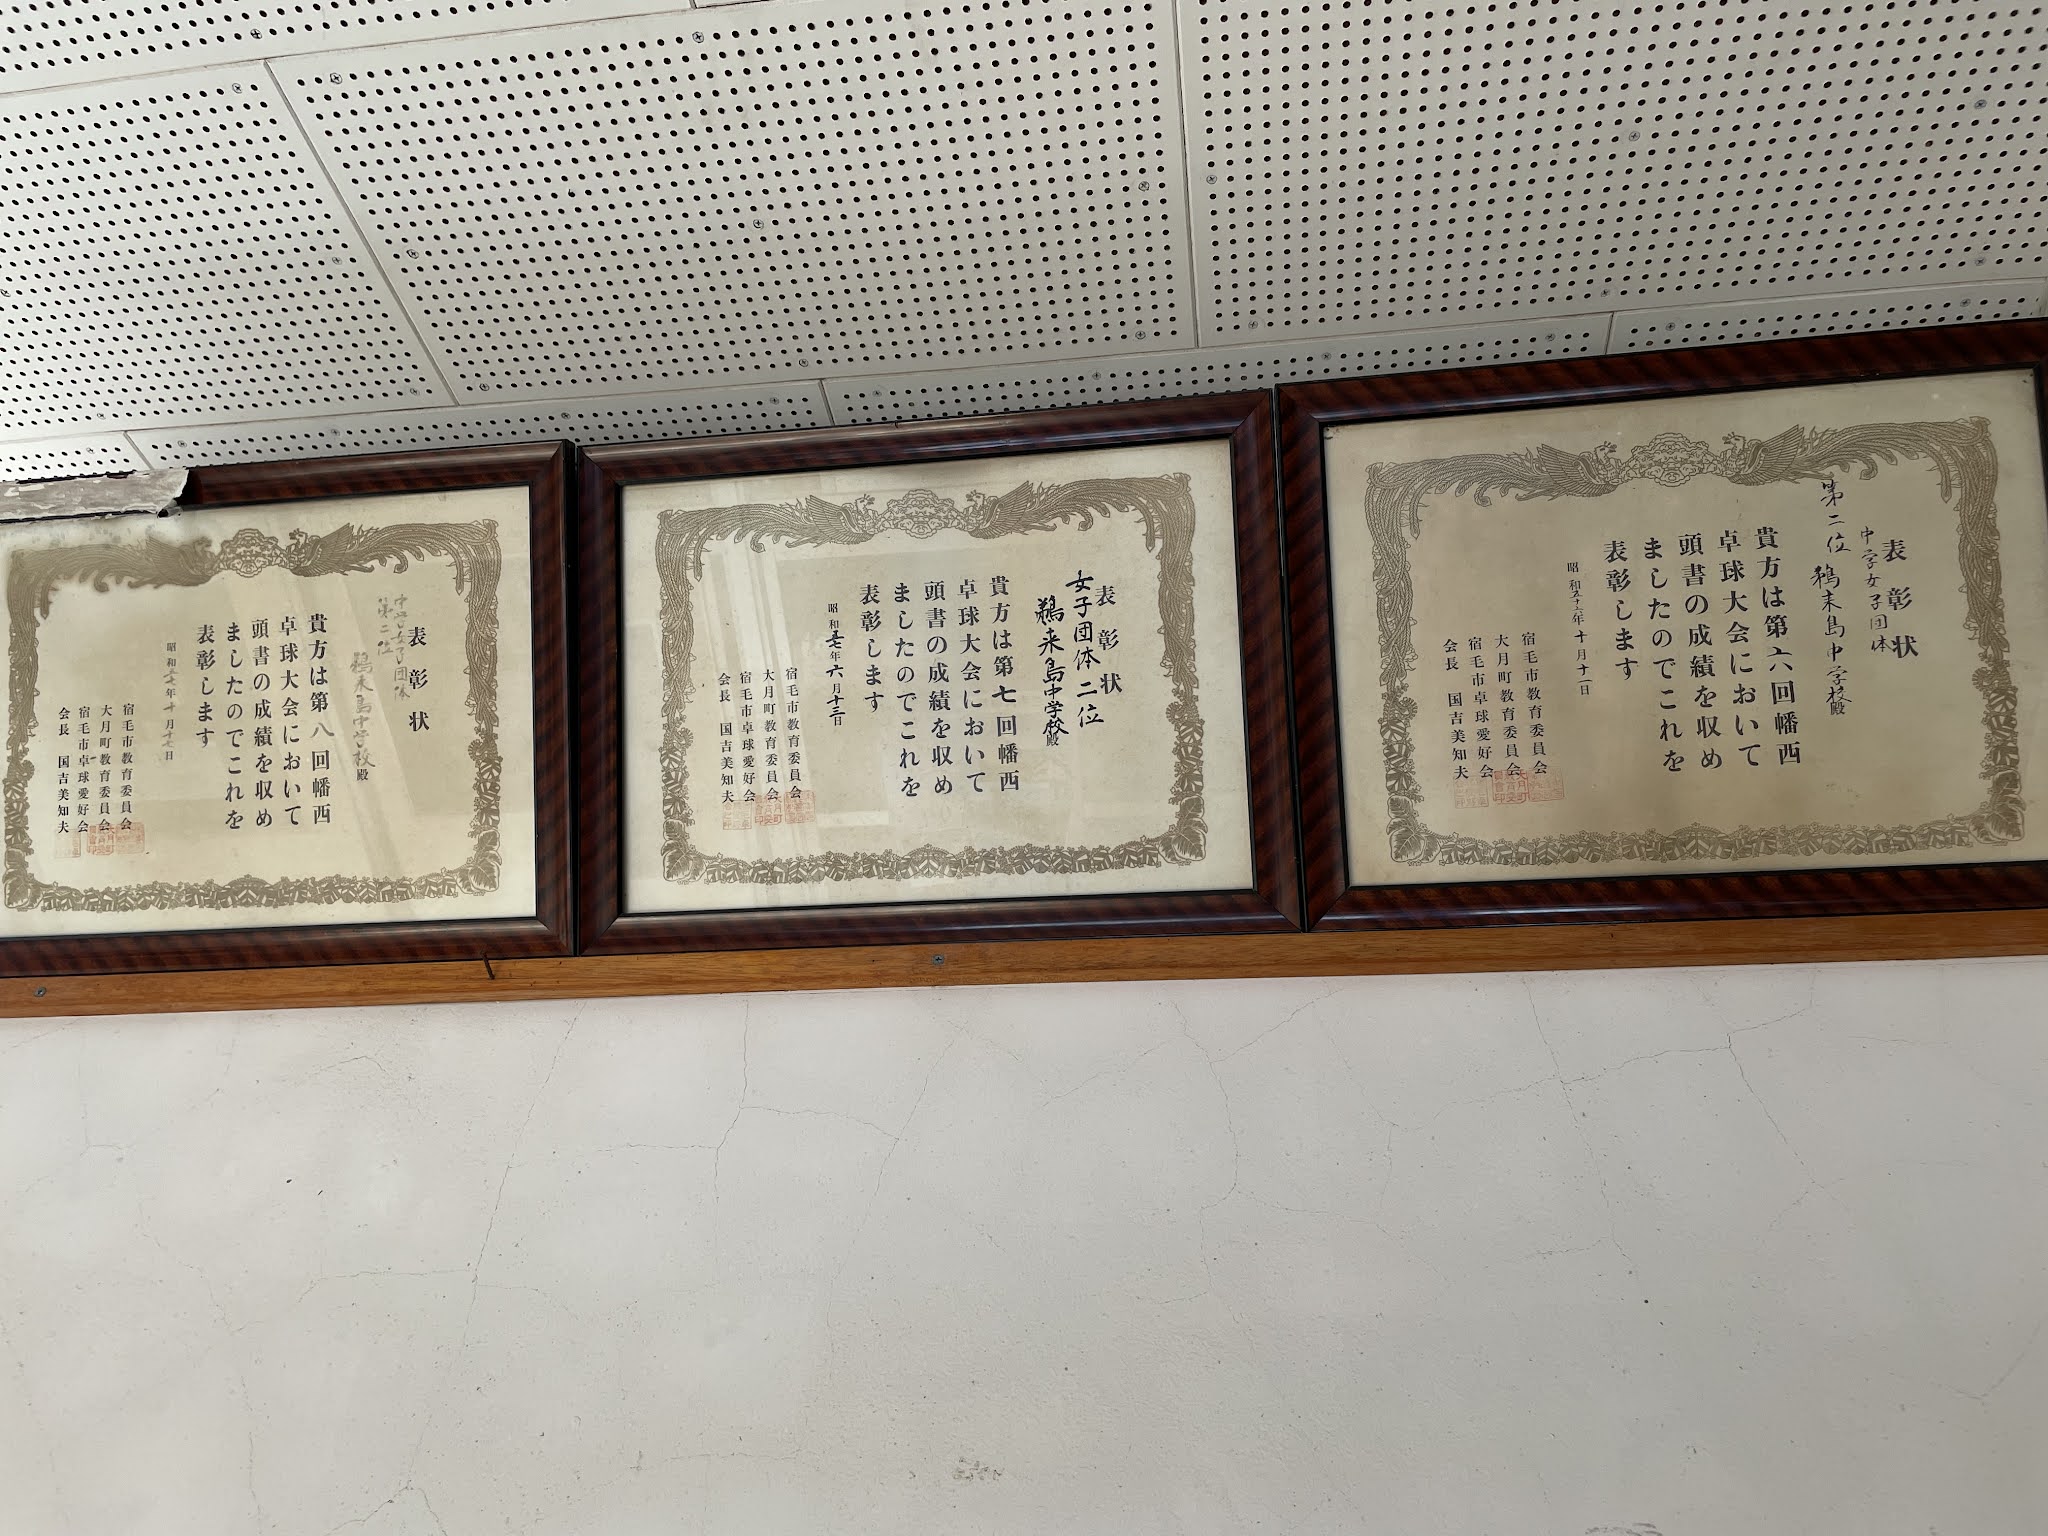 表彰状
中学女子団体
第二位
鵜来島中学校殿
貴方は第六回幡西
卓球大会において
頭書の成績を収め
ましたのでこれを
表彰します
昭和五十六年十月十一日
宿毛市教育委員会
大月町教育委員会
宿毛市卓球愛好会
会長 国吉美知夫
表彰状
女子団体二位
鵜来島中学校殿
貴方は第七回幡西
卓球大会において
頭書の成績を収め
ましたのでこれを
表彰します
昭和五七年六月十三日
宿毛市教育委員会
大月町教育委員会
宿毛市卓球愛好会
会長 国吉美知夫
表彰状
中学女子団体
第二位
鵜来島中学校殿
貴方は第八回幡西
卓球大会において
頭書の成績を収め
ましたのでこれを
表彰します
昭和五七年十月十七日
宿毛市教育委員会
大月町教育委員会
宿毛市卓球愛好会
会長 国吉美知夫